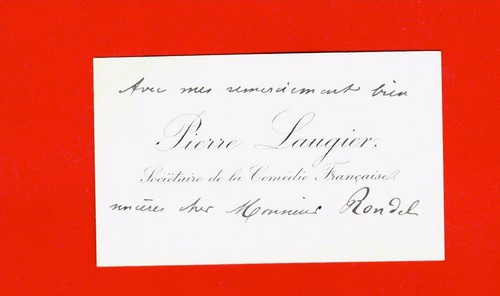 Avec mes remerciement bien
Pierre Laugier,
Sociétaire de la Comédie Française
sincères cher Monsieur Rondel